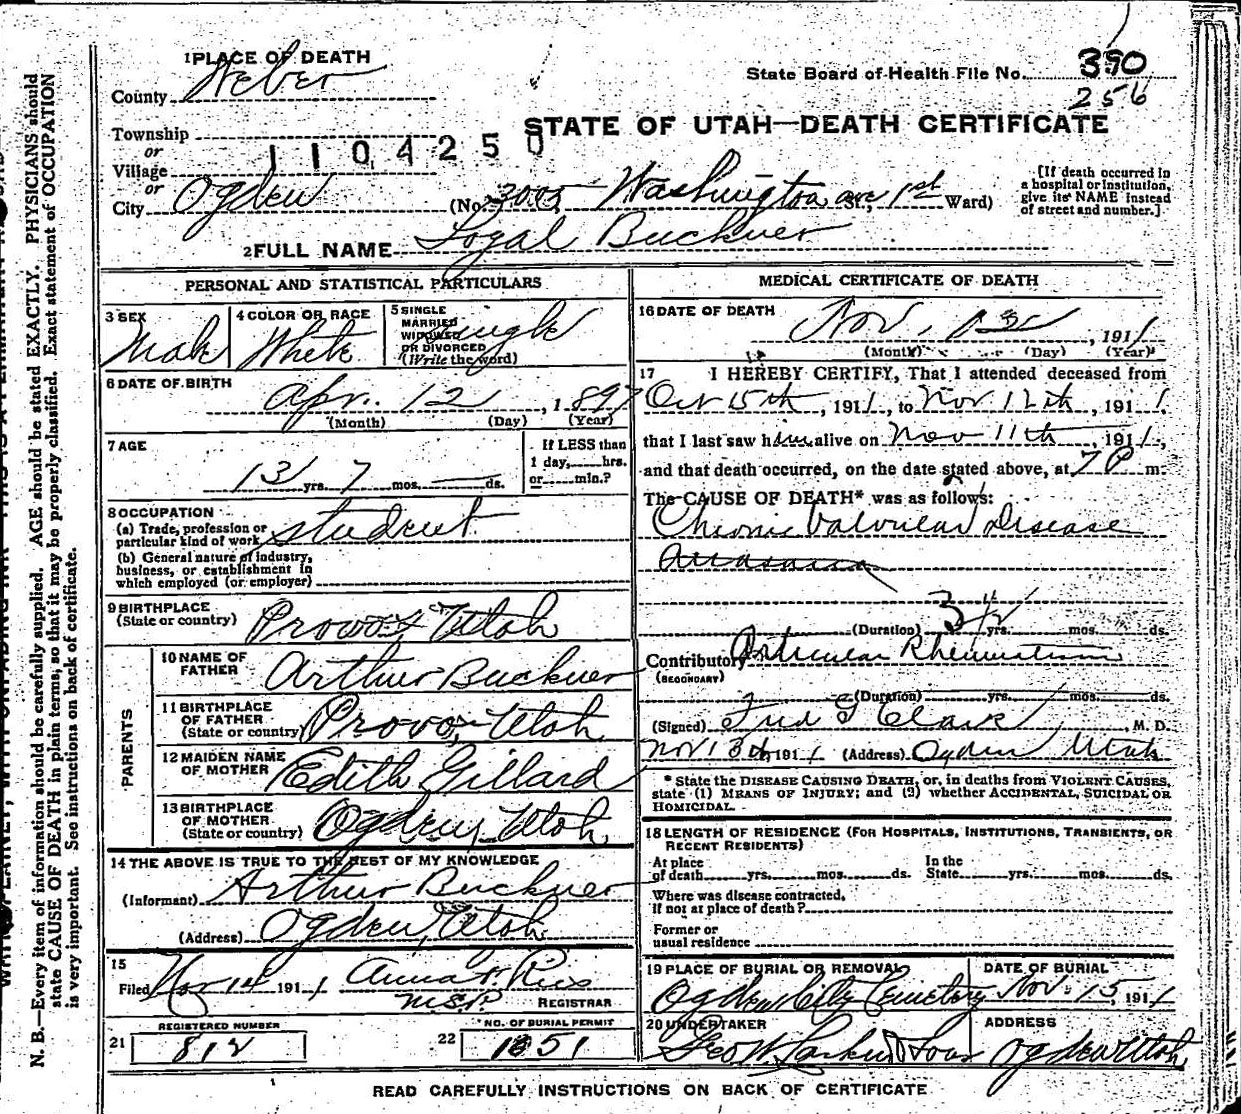 1 PLACE OF DEATH
County Weber
State Board of Health File No. 390
256
Township
or
1104250
STATE OF UTAH—DEATH CERTIFICATE
Village
or
City Ogden (No. 3005 Washington ave St., 1st Ward)
[If death occurred in
a hospital or institution,
give its NAME instead
of street and number.]
2 FULL NAME Logal Buckner
PERSONAL AND STATISTICAL PARTICULARS
3 SEX
Male
4 COLOR OR RACE
White
5 SINGLE
MARRIED
WIDOWED
OR DIVORCED
(Write the word)
Single
6 DATE OF BIRTH
Apr. 12, 1897
(Month) (Day) (Year)
7 AGE
13 yrs. 7 mos. — ds.
If LESS than
1 day, hrs.
or min.?
8 OCCUPATION
(a) Trade, profession or
particular kind of work student
(b) General nature of industry,
business, or establishment in
which employed (or employer)
9 BIRTHPLACE
(State or country) Provo, Utah
PARENTS
10 NAME OF
FATHER Arthur Buckner
11 BIRTHPLACE
OF FATHER
(State or country) Provo, Utah
12 MAIDEN NAME
OF MOTHER Edith Gillard
13 BIRTHPLACE
OF MOTHER
(State or country) Ogden, Utah
14 THE ABOVE IS TRUE TO THE BEST OF MY KNOWLEDGE
(Informant) Arthur Buckner
(Address) Ogden, Utah
15
Filed Nov 14 1911 Anna H. Rice
REGISTRAR
REGISTERED NUMBER
21 812
NO. OF BURIAL PERMIT
22 1651
MEDICAL CERTIFICATE OF DEATH
16 DATE OF DEATH
Nov., 1911
(Month) (Day) (Year)
17 I HEREBY CERTIFY, That I attended deceased from
Oct 15th, 1911, to Nov 12th, 1911,
that I last saw him alive on Nov 11th, 1911,
and that death occurred, on the date stated above, at 7 P m.
The CAUSE OF DEATH* was as follows:
Chronic Valvular disease
Anasarca
(Duration) 3 1/2 yrs. mos. ds.
Contributory Articular Rheumatism
(SECONDARY)
(Duration) yrs. 1 mos. ds.
(Signed) Fred G Clark, M. D.
Nov 13th, 1911 (Address) Ogden Utah
* State the DISEASE CAUSING DEATH, or, in deaths from VIOLENT CAUSES,
state (1) MEANS OF INJURY; and (2) whether ACCIDENTAL, SUICIDAL OR
HOMICIDAL.
18 LENGTH OF RESIDENCE (FOR HOSPITALS, INSTITUTIONS, TRANSIENTS, OR
RECENT RESIDENTS)
At place
of death yrs. mos. ds.
In the
State yrs. mos. ds.
Where was disease contracted,
if not at place of death?
Former or
usual residence
19 PLACE OF BURIAL OR REMOVAL
Ogden City Cemetery
DATE OF BURIAL
Nov. 15, 1911
20 UNDERTAKER
Geo W. Larkin & Sons
ADDRESS
Ogden Utah
READ CAREFULLY INSTRUCTIONS ON BACK OF CERTIFICATE
N. B.—Every item of information should be carefully supplied. AGE should be stated EXACTLY. PHYSICIANS should
state CAUSE OF DEATH in plain terms, so that it may be properly classified. Exact statement of OCCUPATION
is very important. See instructions on back of certificate.